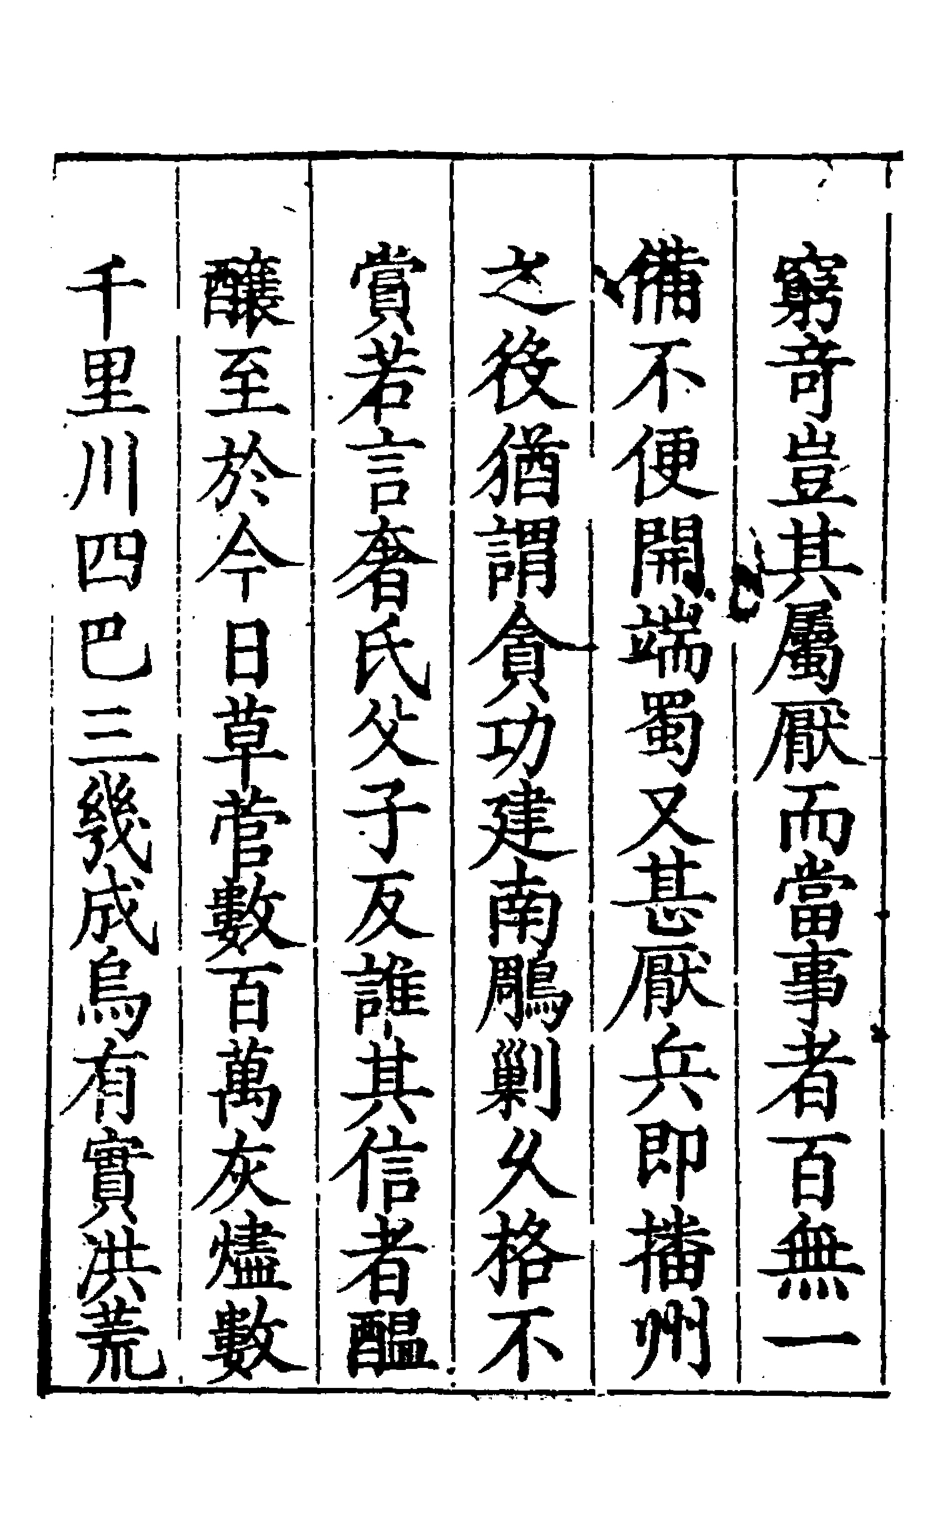 窮竒豈其屬厭而當事者百無一
備不便開端蜀又甚厭兵即播州
之役猶謂貪功建南鵰剿久格不
賞若言奢氏父子反誰其信者醖
釀至於今日草菅數百萬灰燼數
千里川四巴三幾成烏有實洪荒